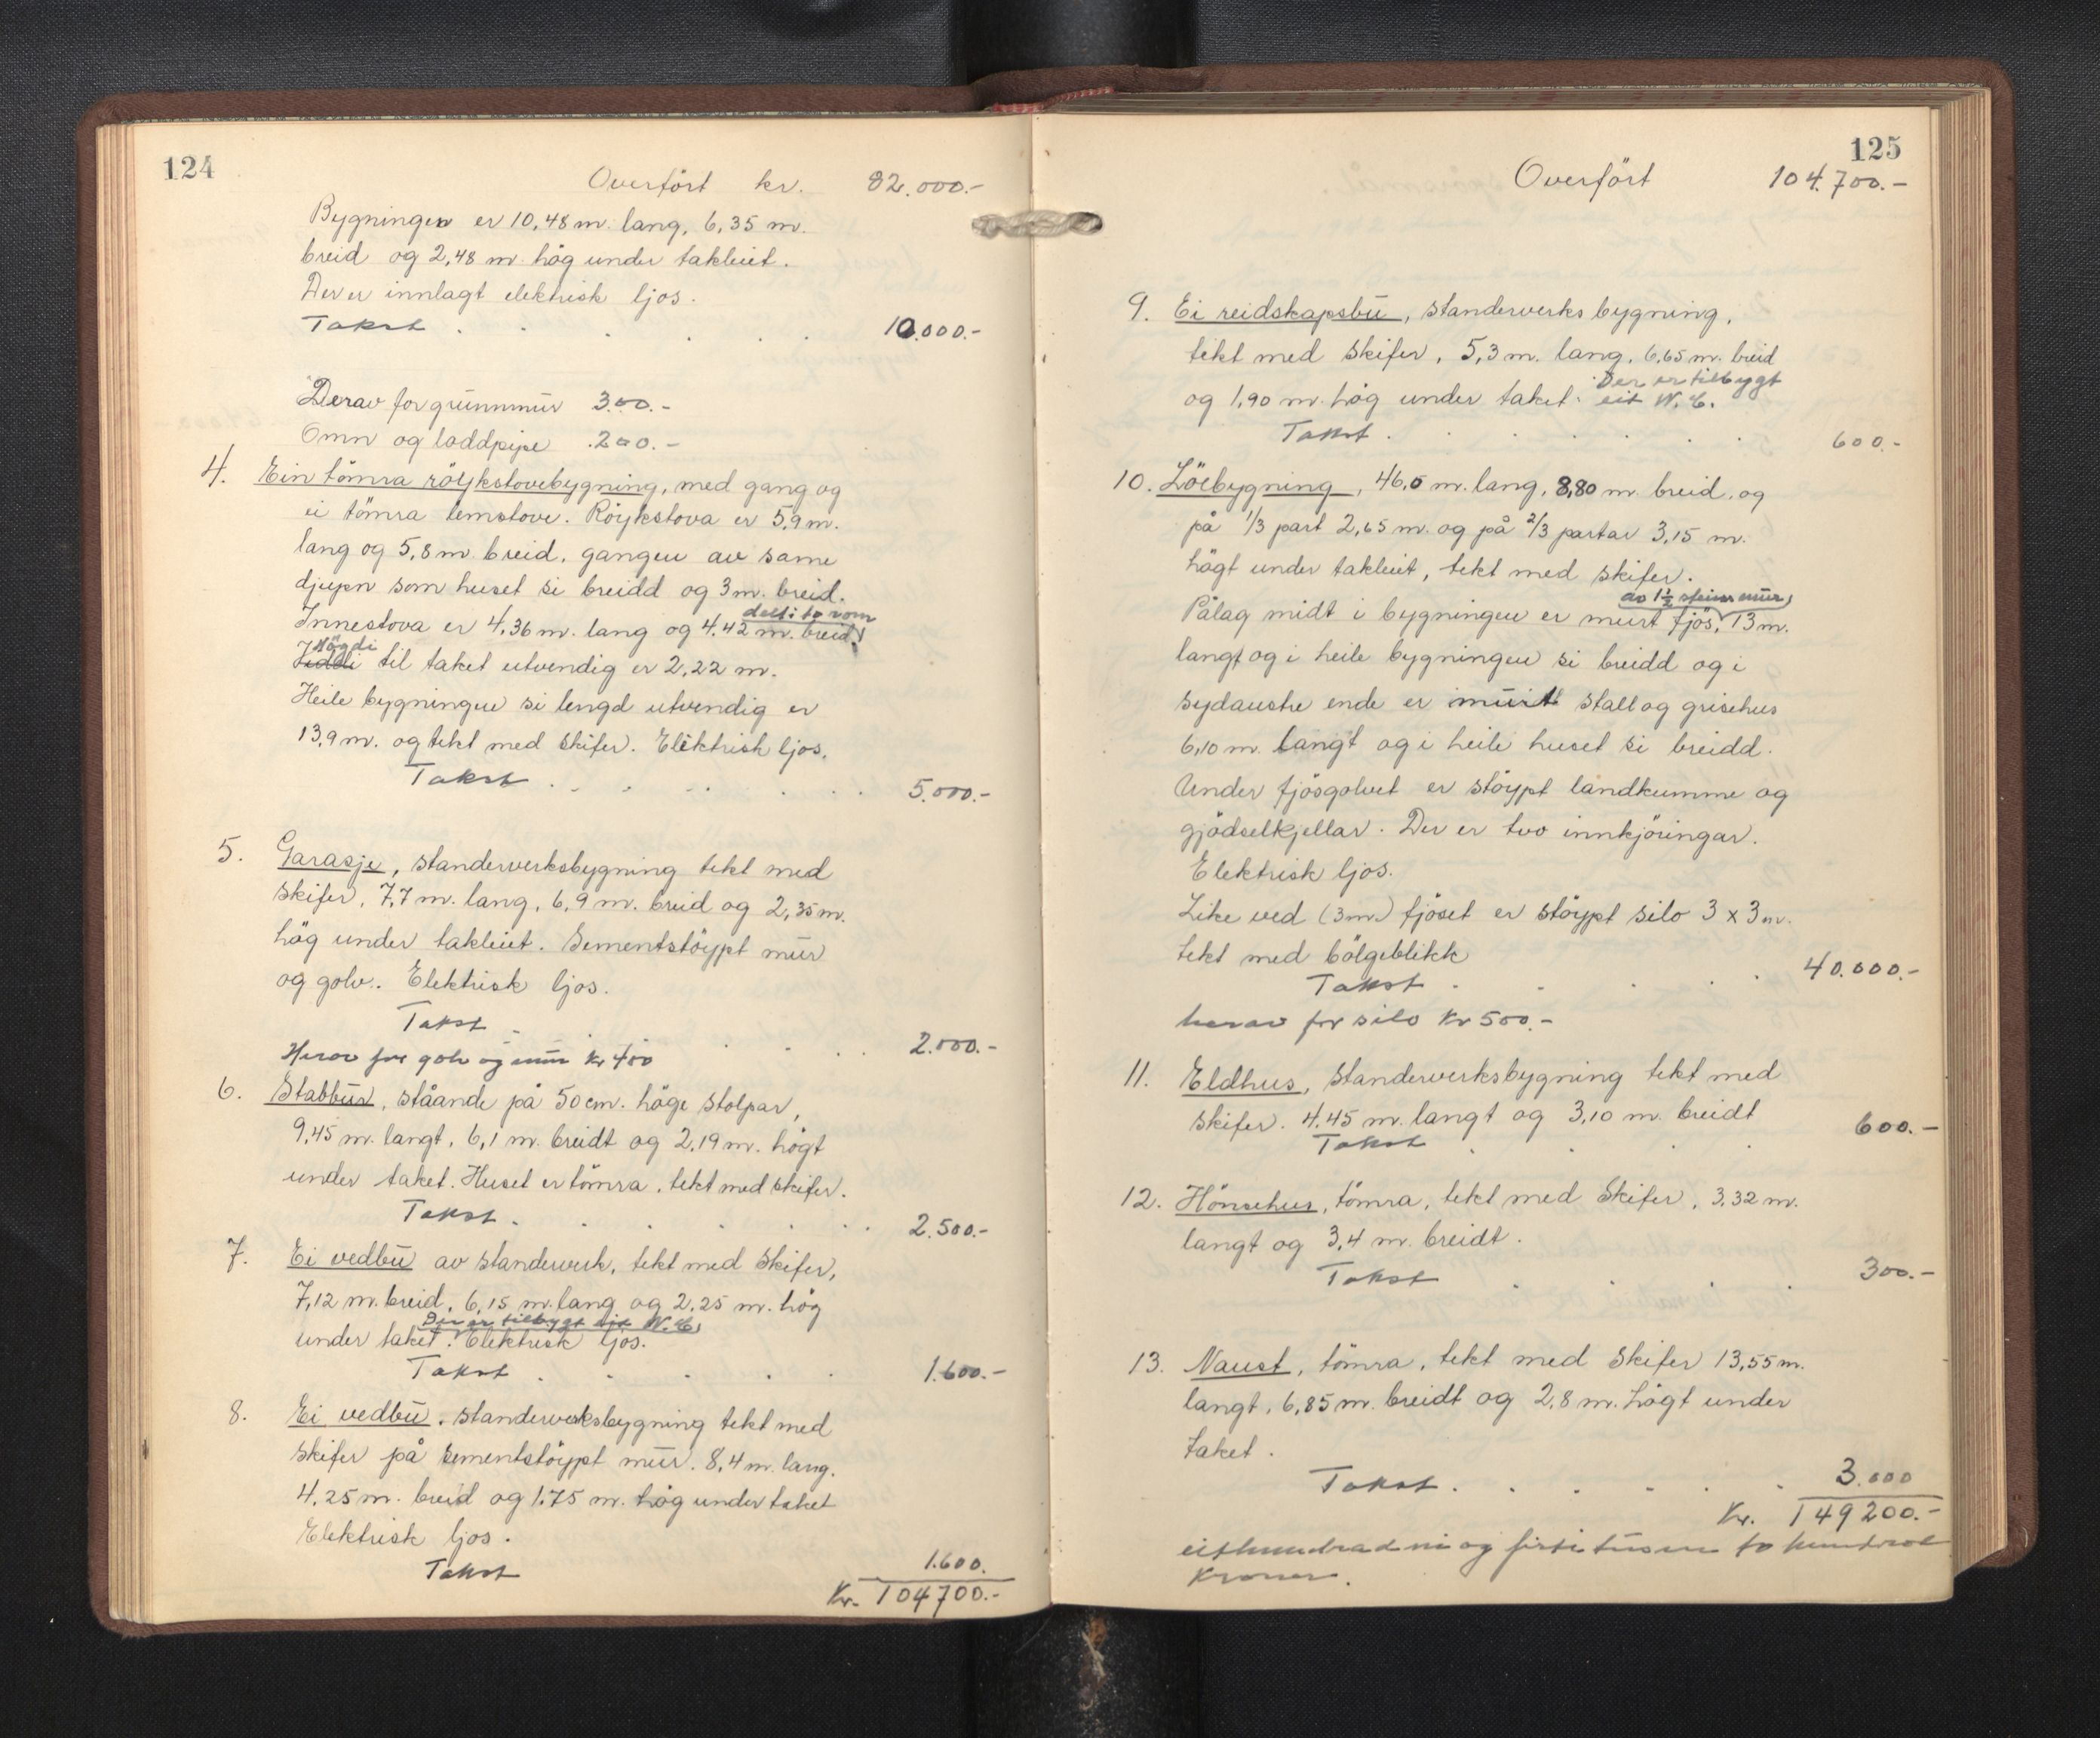 124
Overfört kr. 82.000.-
Bygningen er 10,48 m. lang, 6,35 m.
breid og 2,48 m. høg under takleiet.
Der er innlagt elektrisk ljos.
Takst . . . . . 10.000.-
Derav for grunnmur 300.-
Omn og loddpipe .200.-
4. Ein tömra röykstovebygning, med gang og
ei tömra lemstove. Röykstova er 5,9 m.
lang og 5,8 m. breid, gangen av same
djupn som huset si breidd og 3 m. breid.
delt i to rom
Innestova er 4,36 m. lang og 4,42 m. breid.
Högdi
til taket utvendig er 2,22 m.
Heile bygningen si lengd utvendig er
13,9 m. og tekt med skifer. Elektrisk ljos.
Takst . . . . . . 5.000.-
5. Garasje, standerverksbygning tekt med
skifer, 7,7 m. lang, 6,9 m. breid og 2,35 m.
hög under takleiet. Sementstöypt mur
og golv. Elektrisk ljos.
Takst . . . . . 2.000.-
Herav for golv og mur kr 400
6. Stabbur, ståande på 50 cm. höge stolpar,
9,45 m. langt, 6,1 m. breidt og 2,19 m. högt
under taket. Huset er tömra, tekt med skifer.
Takst . . . . . . . 2.500.-
7. Ei vedbu av standerverk, tekt med skifer,
7,12 m. breid, 6,15 m. lang og 2,25 m. hög
Der er tilbygt eit W.C.
under taket. Elektrisk ljos.
Takst . . . . . 1.600.-
8. Ei vedbu, standerverksbygning tekt med
skifer på sementstöypt mur. 8,4 m. lang.
4,25 m. breid og 1,75 m. hög under taket
Elektrisk ljos.
Takst 1.600.
Kr. 104700.-
125
Overfört 104.700.-
9. Ei reidskapsbu, standerverksbygning,
tekt med skifer, 5,3 m. lang, 6,65 m. breid
Der er tilbygt
og 1,90 m. hög under taket. eit W.C.
Takst . . . . . . 600.-
10. Löebygning, 46,0 m. lang, 8,80 m. breid, og
på 1/3 part 2,65 m. og på 2/3 partar 3,15 m.
högt under takleiet, tekt med skifer.
av 1½ steins mur
Pålag midt i bygningen er murt fjös, 13 m.
langt og i heile bygningen si breidd og i
sydaustre ende er murt stall og grisehus
6,10 m. langt og i heile huset si breidd.
Under fjösgolvet er stöypt landkumme og
gjödselkjellar. Der er two innkjöringar.
Elektrisk ljos.
Like ved (3m.) fjöset er stöypt silo 3 x 3 m.
tekt med bölgeblikk
Takst . . . . . 40.000.-
herav for silo Kr 500.-
11. Eldhus, standerverksbygning tekt med
skifer. 4,45 m. langt og 3,10 m. breidt
Takst . . . . 600.-
12. Hönsehus, tömra, tekt med skifer, 3,32 m.
langt og 3,4 m. breidt.
Takst . . . . 300.-
13. Naust, tömra, tekt med skifer 13,55 m.
langt, 6,85 m. breidt og 2,8 m. högt under
taket.
Takst . . . . . . 3.000
Kr. 149200.-
eithundrad ni og firti tusen to hundrad
kroner.